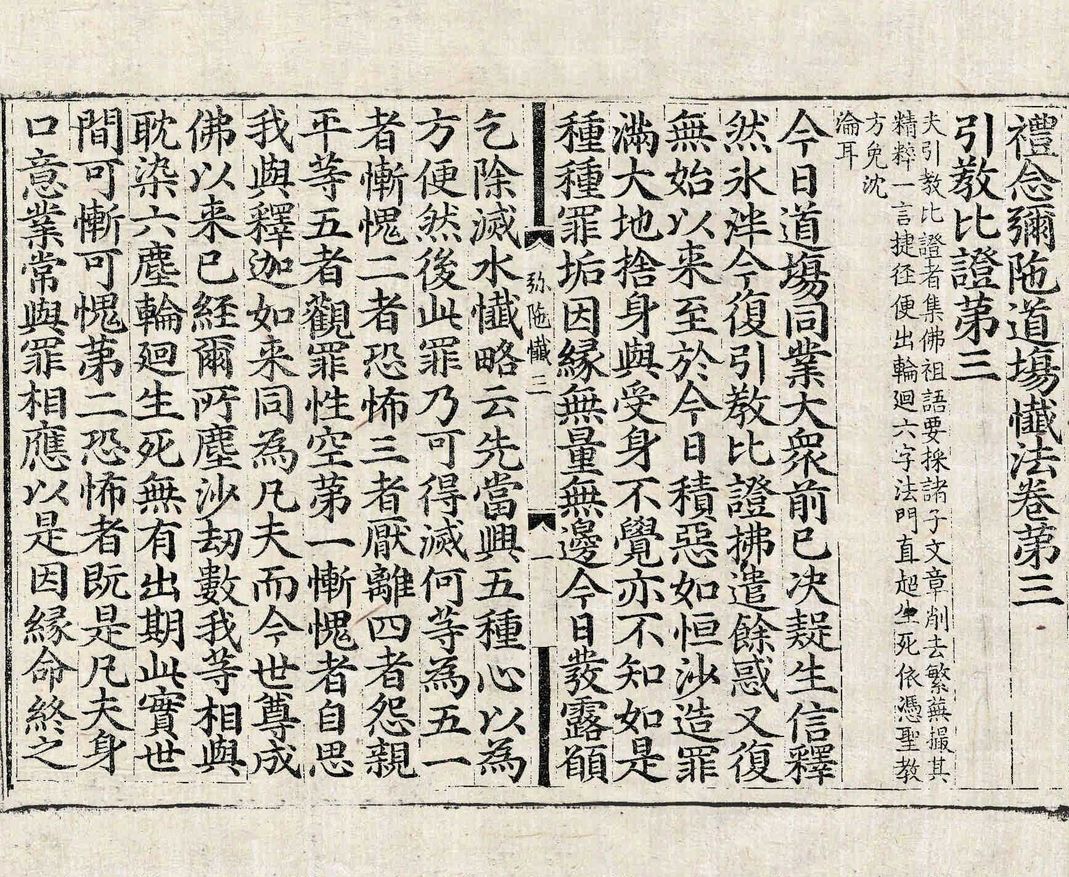 禮念彌陁道場懺法卷苐三
引教比證苐三
夫引教比證者集佛祖語要採諸子文章削去繁蕪撮其
精粹一言捷径便出輪廻六字法門直超生死依憑聖教
方免沈
淪耳
今日道場同業大衆前已决疑生信釋
然氷泮今復引教比證拂遣餘惑又復
無始以来至於今日積惡如恒沙造罪
滿大地捨身與受身不覺亦不知如是
種種罪垢因縁無量無邊今日發露願
弥陁懺三
一
乞除滅水懺略云先當興五種心以為
方便然後此罪乃可得滅何等為五一
者慚愧二者恐怖三者厭離四者怨親
平等五者觀罪性空苐一慚愧者自思
我與釋迦如来同為凡夫而今世尊成
佛以来已經爾所塵沙劫數我等相與
耽染六塵輪廻生死無有出期此實世
間可慚可愧苐二恐怖者既是凡夫身
口意業常與罪相應以是因縁命終之